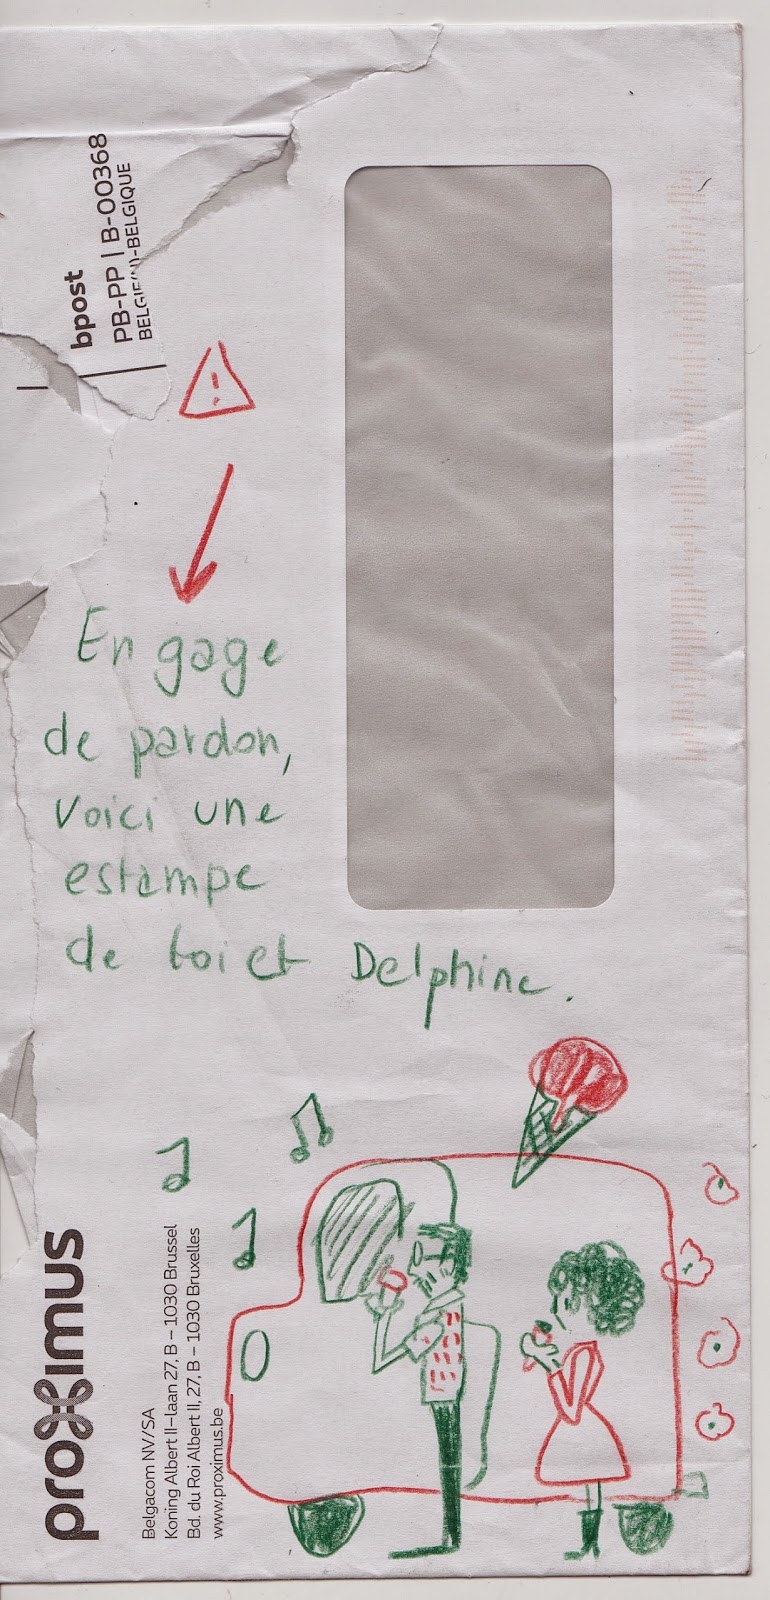 bpost
PB-PP | B-00368
BELGIE(N)-BELGIQUE
En gage
de pardon,
voici une
estampe
de toi et Delphine.
proximus
Belgacom NV/SA
Koning Albert II-laan 27, B – 1030 Brussel
Bd. du Roi Albert II, 27, B – 1030 Bruxelles
www.proximus.be